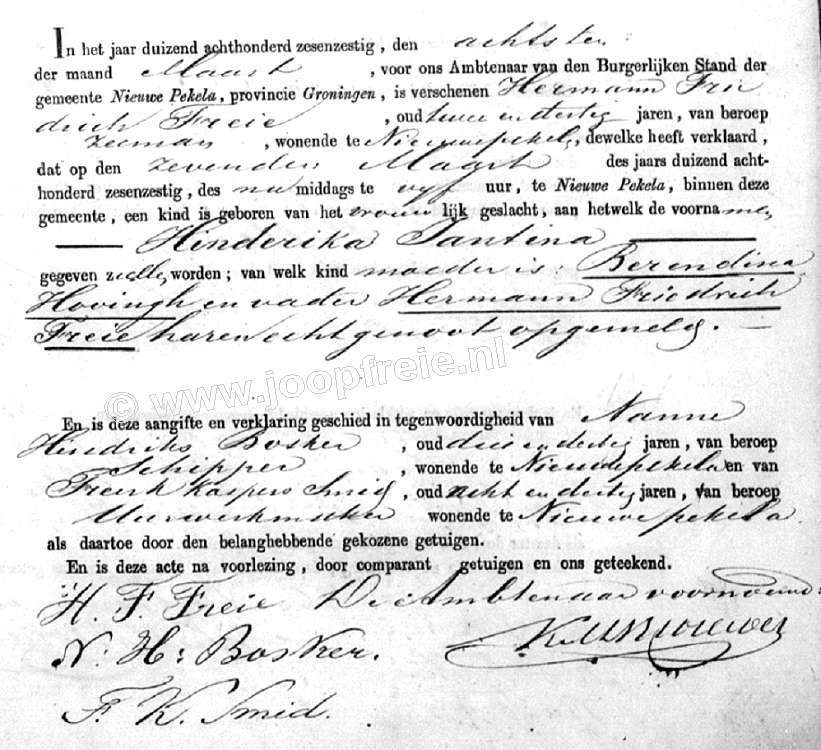 In het jaar duizend achthonderd zesenzestig, den achtsten
der maand Maart, voor ons Ambtenaar van den Burgerlijken Stand der
gemeente Nieuwe Pekela, provincie Groningen, is verschenen Hermann Frie
drich Freie, oud twee en dertig jaren, van beroep
zeeman, wonende te Nieuwepekela, dewelke heeft verklaard,
dat op den zevenden Maart des jaars duizend acht-
honderd zesenzestig, des na middags te vyf uur, te Nieuwe Pekela, binnen deze
gemeente, een kind is geboren van het vrouw lijk geslacht, aan hetwelk de voorna men
Hinderika Jantina
gegeven zullen worden; van welk kind moeder is: Berendina
Hovingh en vader Hermann Friedrich
Freie haren echtgenoot opgemeld.
© www.joopfreie.nl
En is deze aangifte en verklaring geschied in tegenwoordigheid van Nanne
Hindriks Bosker, oud drie en dertig jaren, van beroep
Schipper, wonende te Nieuwepekela en van
Freerk Kaspers Smid, oud acht en dertig jaren, van beroep
Uurwerkmaker wonende te Nieuwepekela
als daartoe door den belanghebbende gekozene getuigen.
En is deze acte na voorlezing, door comparant getuigen en ons geteekend.
H. F. Freie De Ambtenaar voornoemd:
N: H: Bosker.
F. K. Smid.